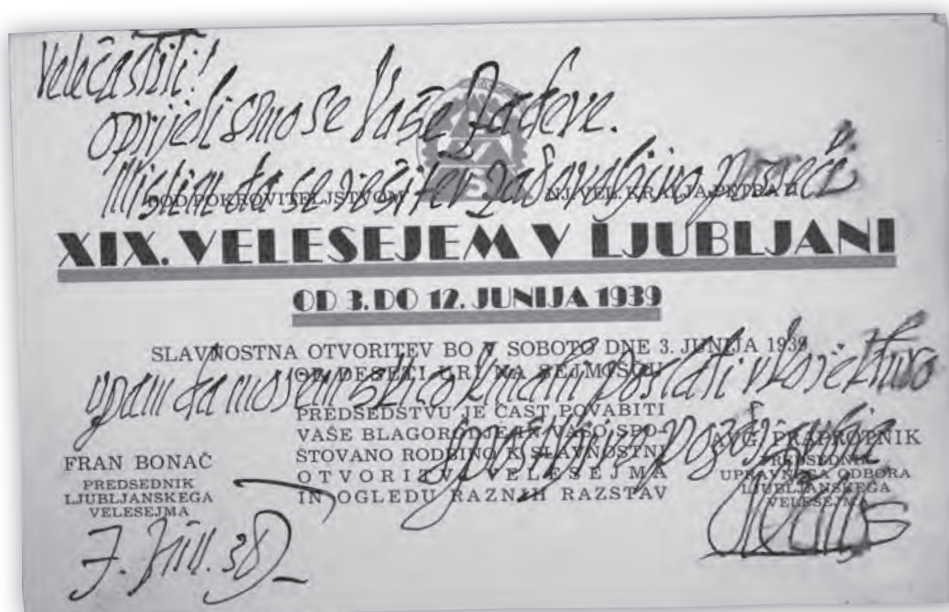 Velečastiti!
Oprijeli smo se Vaše zadeve.
Mislim da se rešitev zadovoljivo posreči
POD POKROVITELJSTVOM NJ. VEL. KRALJA PETRA II.
XIX. VELESEJEM V LJUBLJANI
OD 3. DO 12. JUNIJA 1939
SLAVNOSTNA OTVORITEV BO V SOBOTO DNE 3. JUNIJA 1939
OB DESETI URI NA SEJMIŠČU
upam da skico kmalu poslati
PREDSEDSTVU JE ČAST POVABITI
VAŠE BLAGORODJE IN VAŠO SPO-
ŠTOVANO RODBINO K SLAVNOSTNI
OTVORITVI VELESEJMA
IN OGLEDU RAZNIH RAZSTAV
pozdravlja
FRAN BONAČ
PREDSEDNIK
LJUBLJANSKEGA
VELESEJMA
AVG. PRAPROTNIK
PREDSEDNIK
UPRAVNEGA ODBORA
LJUBLJANSKEGA
VELESEJMA